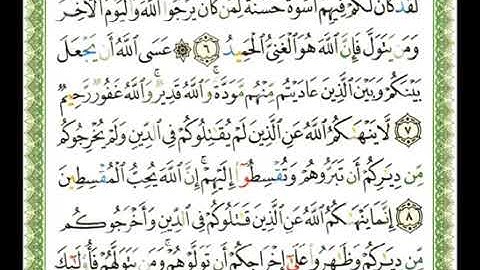 لَقَدْ كَانَ لَكُمْ فِيهِمْ أُسْوَةٌ حَسَنَةٌ لِمَن كَانَ يَرْجُوا۟ ٱللَّهَ وَٱلْيَوْمَ ٱلْءَاخِرَ
وَمَن يَتَوَلَّ فَإِنَّ ٱللَّهَ هُوَ ٱلْغَنِىُّ ٱلْحَمِيدُ ٦ ۞ عَسَى ٱللَّهُ أَن يَجْعَلَ
بَيْنَكُمْ وَبَيْنَ ٱلَّذِينَ عَادَيْتُم مِّنْهُم مَّوَدَّةً ۚ وَٱللَّهُ قَدِيرٌ ۚ وَٱللَّهُ غَفُورٌ رَّحِيمٌ
٧ لَّا يَنْهَىٰكُمُ ٱللَّهُ عَنِ ٱلَّذِينَ لَمْ يُقَـٰتِلُوكُمْ فِى ٱلدِّينِ وَلَمْ يُخْرِجُوكُم
مِّن دِيَـٰرِكُمْ أَن تَبَرُّوهُمْ وَتُقْسِطُوٓا۟ إِلَيْهِمْ ۚ إِنَّ ٱللَّهَ يُحِبُّ ٱلْمُقْسِطِينَ
٨ إِنَّمَا يَنْهَىٰكُمُ ٱللَّهُ عَنِ ٱلَّذِينَ قَـٰتَلُوكُمْ فِى ٱلدِّينِ وَأَخْرَجُوكُم
مِّن دِيَـٰرِكُمْ وَظَـٰهَرُوا۟ عَلَىٰٓ إِخْرَاجِكُمْ أَن تَوَلَّوْهُمْ ۚ وَمَن يَتَوَلَّهُمْ فَأُو۟لَـٰٓئِكَ